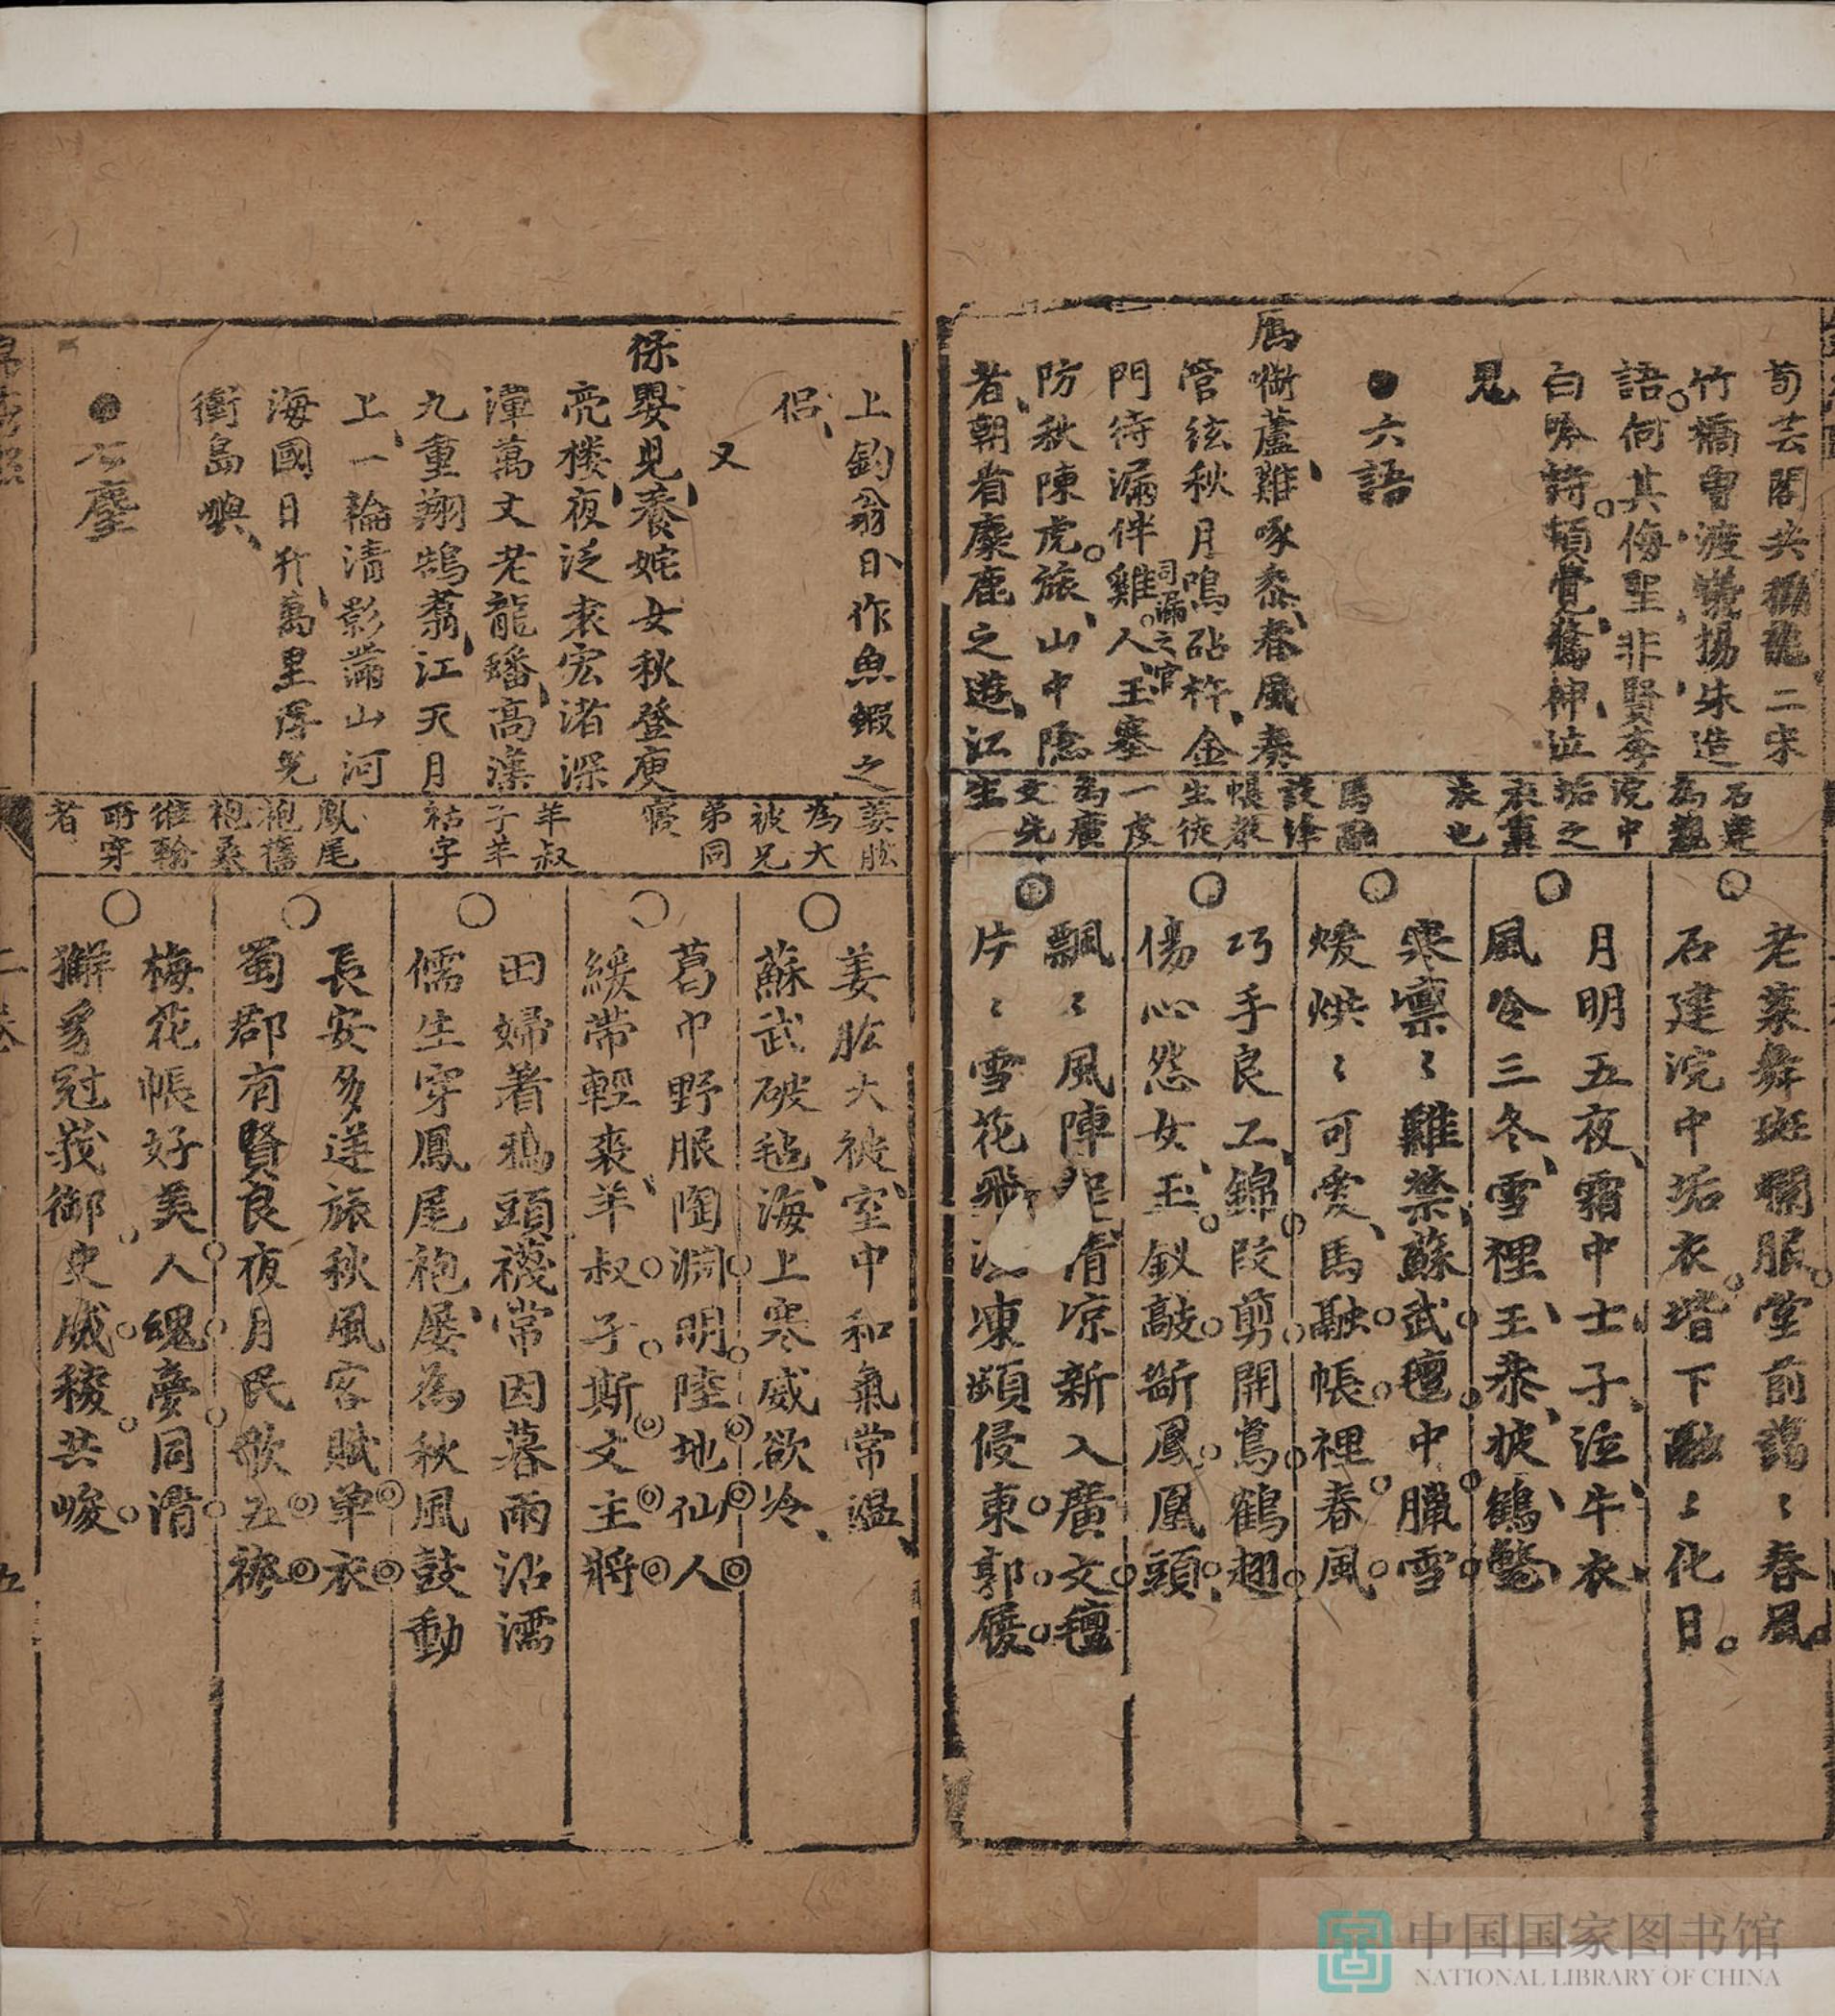 荀芸閣共搦龍二宋
竹橋曾渡蟻揚朱造
語何其侮聖非賢李
白吟詩頓覺驚神泣
鬼
六語
鴈啣蘆雞啄黍春風奏
管絃秋月鳴砧杵金
門待漏伴雞人玉塞
司漏之官
防秋陳虎旅山中隱
者朝看麋鹿之遊江
石建
為親
浣中
垢之
衣裏
衣也
馬融
設絳
帳教
生徒
一虔
為廣
文先
生
老萊舞斑斕服堂前藹〻春風
石建浣中垢衣堦下融〻化日
月明五夜霜中士子泣牛衣
風冷三冬雪裡王恭披鶴氅
寒凛〻難禁蘇武氊中臘雪
煖烘〻可愛馬融帳裡春風
巧手良工錦段剪開鴛鶴翅
傷心怨女玉釵敲斷鳳凰頭
飄〻風陣涼新入廣文氊
片〻雪花凍頻侵東郭履
上釣翁日作魚鰕之
侶
又
保嬰兒養姹女秋登庾
亮楼夜泛袁宏渚深
潭萬丈老龍蟠高漢
九重翔鵠翥江天月
上一輪清影滿山河
海國日升萬里浮光
銜島嶼
七麈
姜肱
為大
被兄
弟同
寢
羊叔
子羊
祜字
鳳尾
袍舊
袍桑
維翰
所穿
者
姜肱大被室中和氣常温
蘇武破毡海上寒威欲冷
葛巾野服陶淵明陸地仙人
緩帶輕裘羊叔子斯文主將
田婦著鴉頭襪常因暮雨沾濡
儒生穿鳳尾袍屡為秋風鼓動
長安多逆旅秋風客賦单衣
蜀郡有賢良夜月民歌五袴
梅花帳好美人魂夢同清
獬豸冠峩御史威稜共峻
二卷
五
中国国家图书馆
NATIONAL LIBRARY OF CHINA